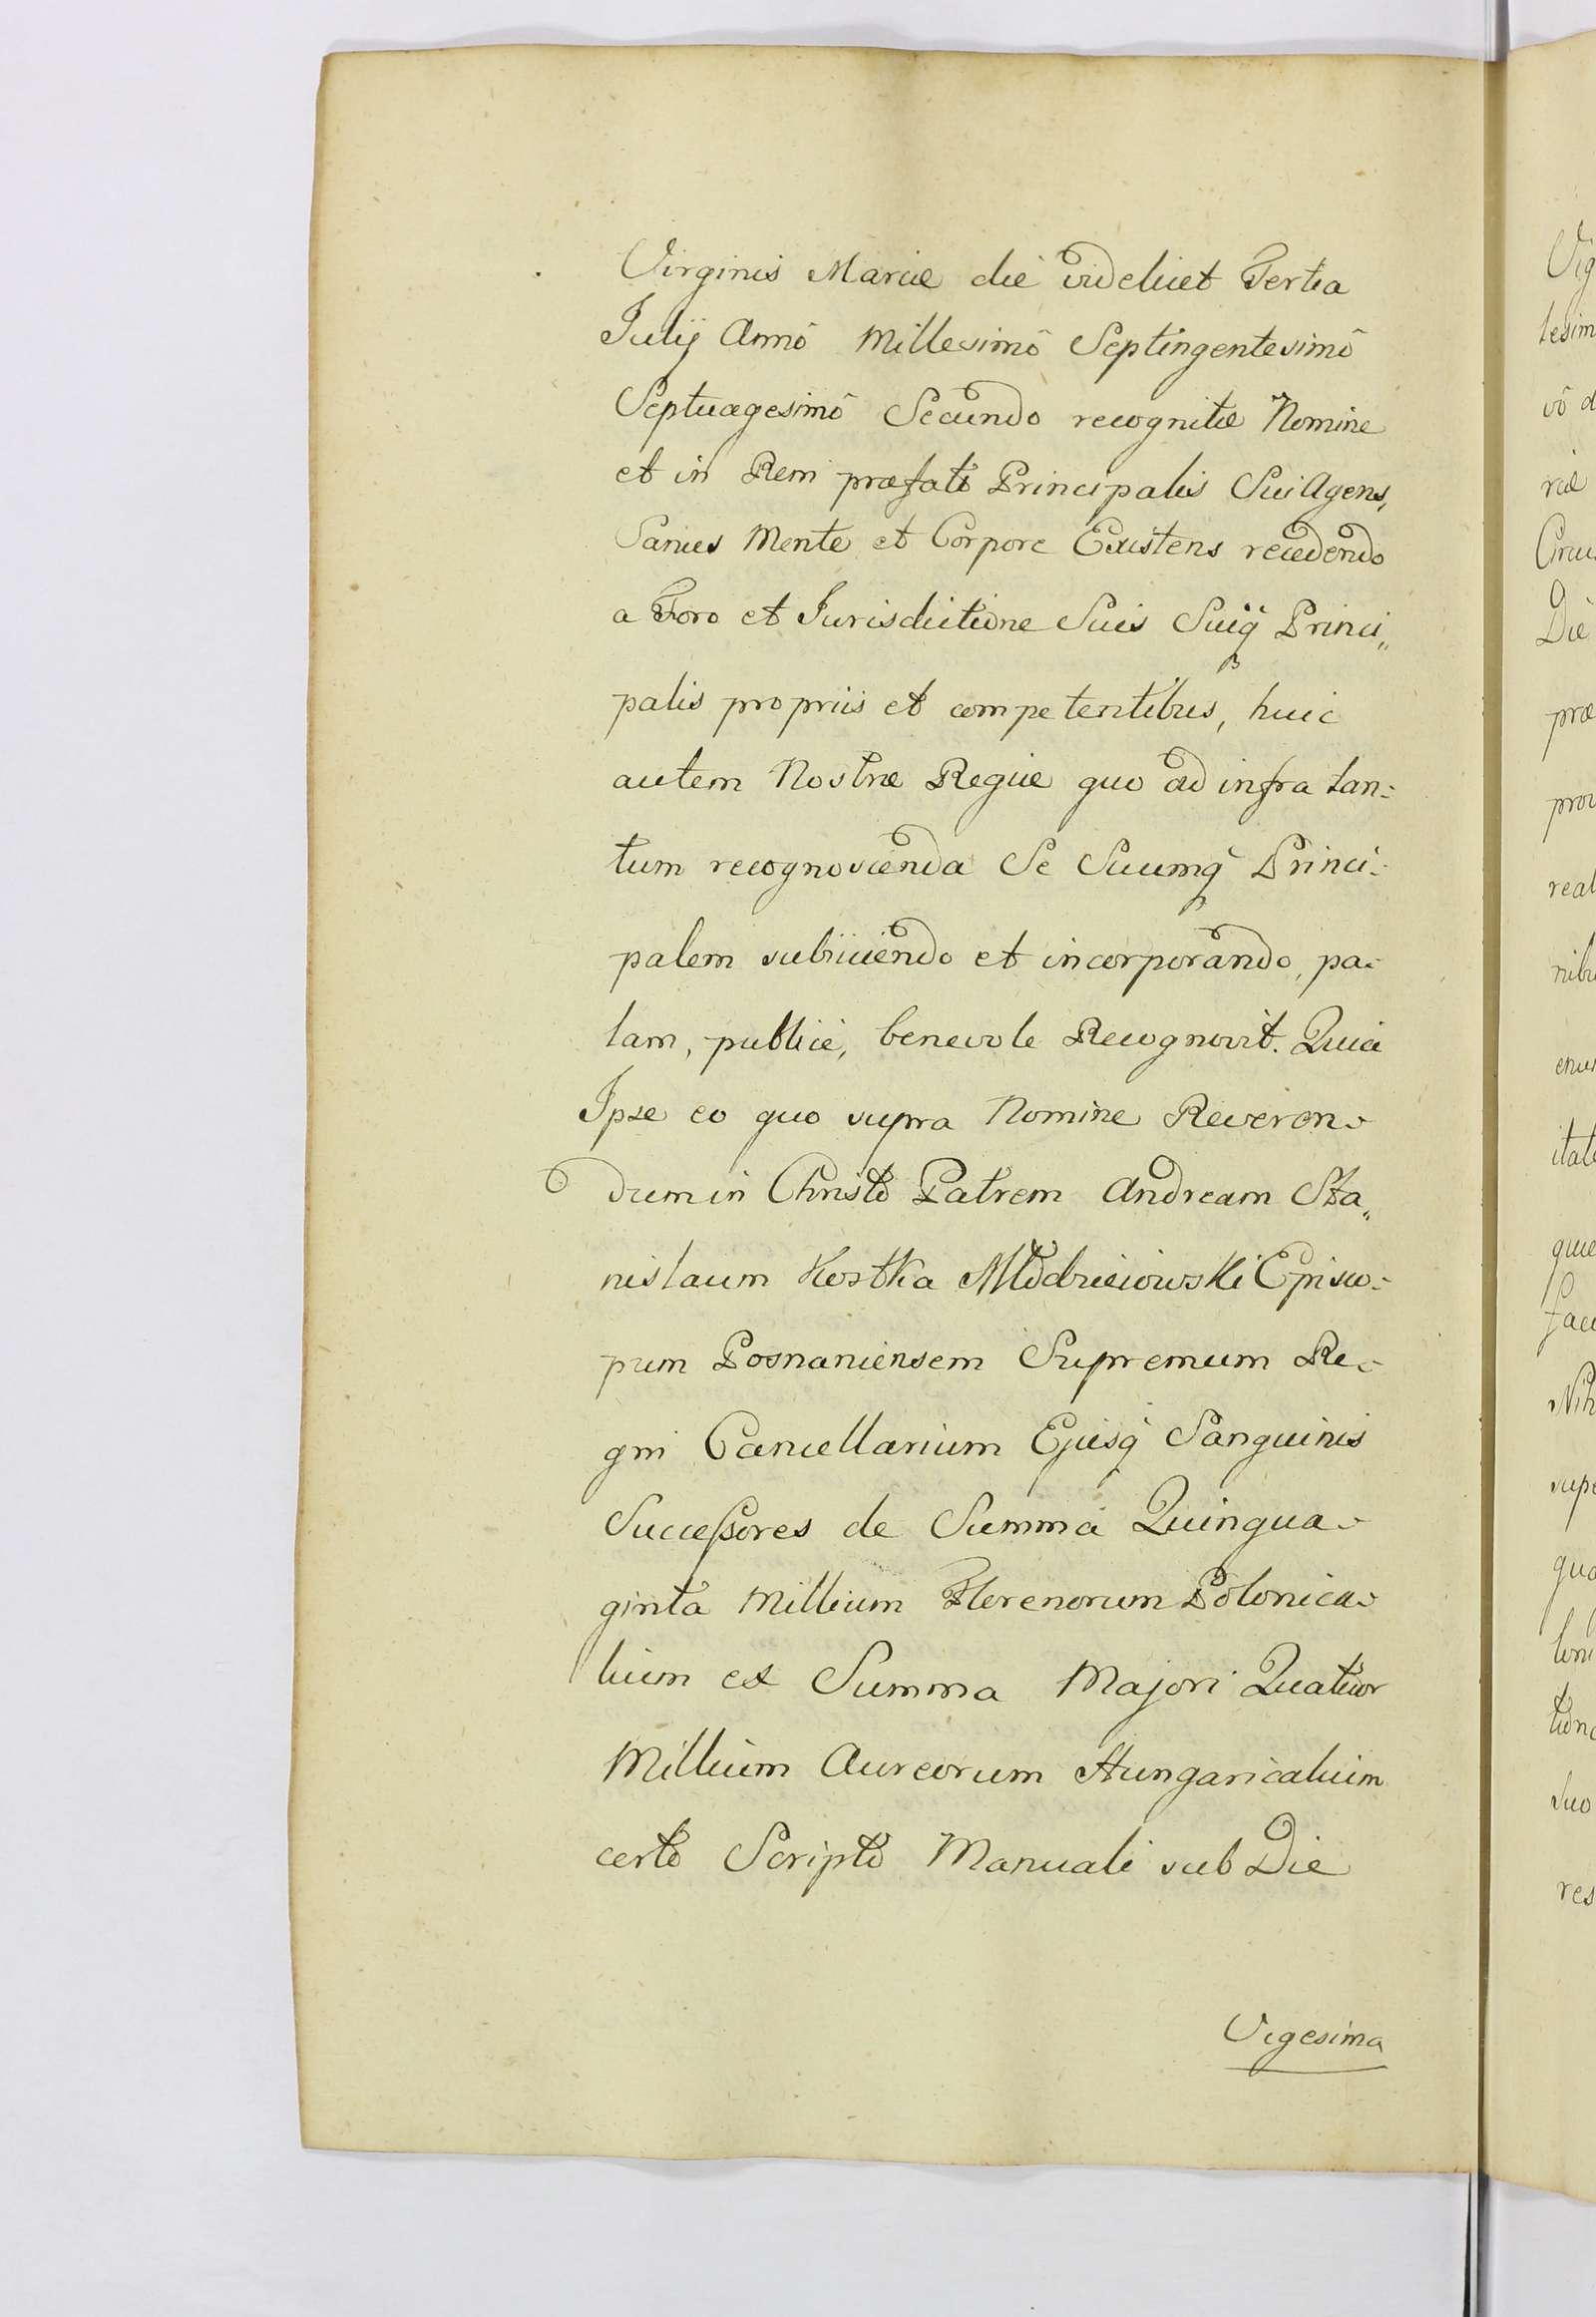 Virginis Mariæ die videlicet Tertia
Julij Annô Millesimô Septingentesimô
Septuagesimô Secundo recognitæ Nomine
et in Rem præfati Principalis Sui Agens,
Sanus Mente et Corpore Existens recedendo
a Foro et Jurisdictione Suis Suiq̃ Princi„
palis propriis et competentibus, huic
autem Nostræ Regiæ quo ad infra tan:
tum recognoscenda Se Suumq̃ Princi:
palem subiiciendo et incorporando, pa:
lam, publicè, benevole Recognovit. Quia
Ipse eo quo supra Nomine Reveren:
dum in Christo Patrem Andream Sta„
nislaum Kostka Młodzieiowski Episco:
pum Posnaniensem Supremum Re:
gni Cancellarium Ejusq̃ Sanguinis
Successores de Summa Quinqua:
ginta Millium Florenorum Polonica:
lium ex Summa Majori Quatuor
Millium Aureorum Hungaricalium
certo Scripto Manuali sub Die
Vigesima